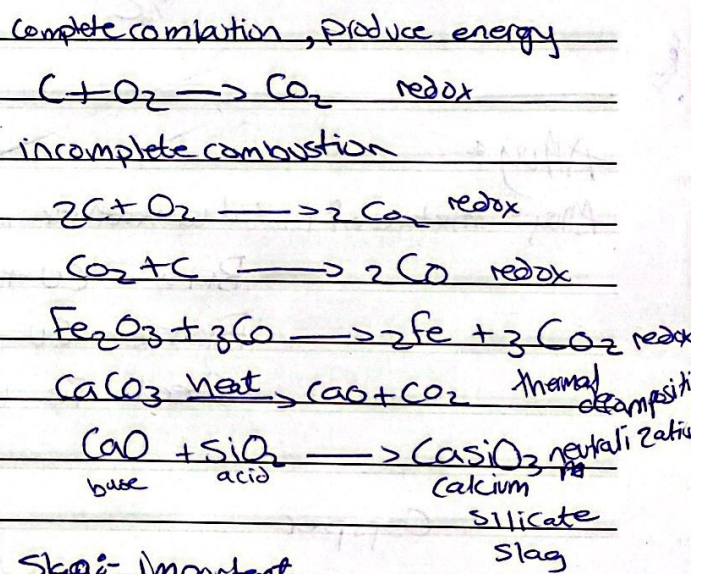 complete combustion , produce energy
C + O₂ —> CO₂ redox
incomplete combustion
2C + O₂ —> 2 CO₂ redox
CO₂ + C —> 2 CO redox
Fe₂O₃ + 3CO —> 2Fe + 3 CO₂ redox
CaCO₃ heat —> CaO + CO₂ thermal
decompositi
CaO + SiO₂ —> CaSiO₃ neutralizatio
base acid Calcium
silicate
slag
Slag:- Important